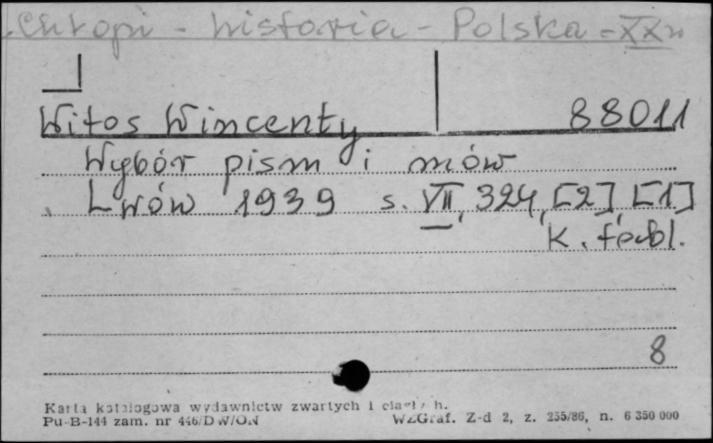 Chłopi - historia - Polska - XX w
Witos Wincenty 88011
Wybór pism i mów
Lwów 1939 s. VII, 324, [2], [1]
k. tabl.
8
Karta katalogowa wydawnictw zwartych i ciągłych.
Pu-B-144 zam. nr 446/DW/ON WZGraf. Z-d 2, z. 255/86, n. 6 350 000